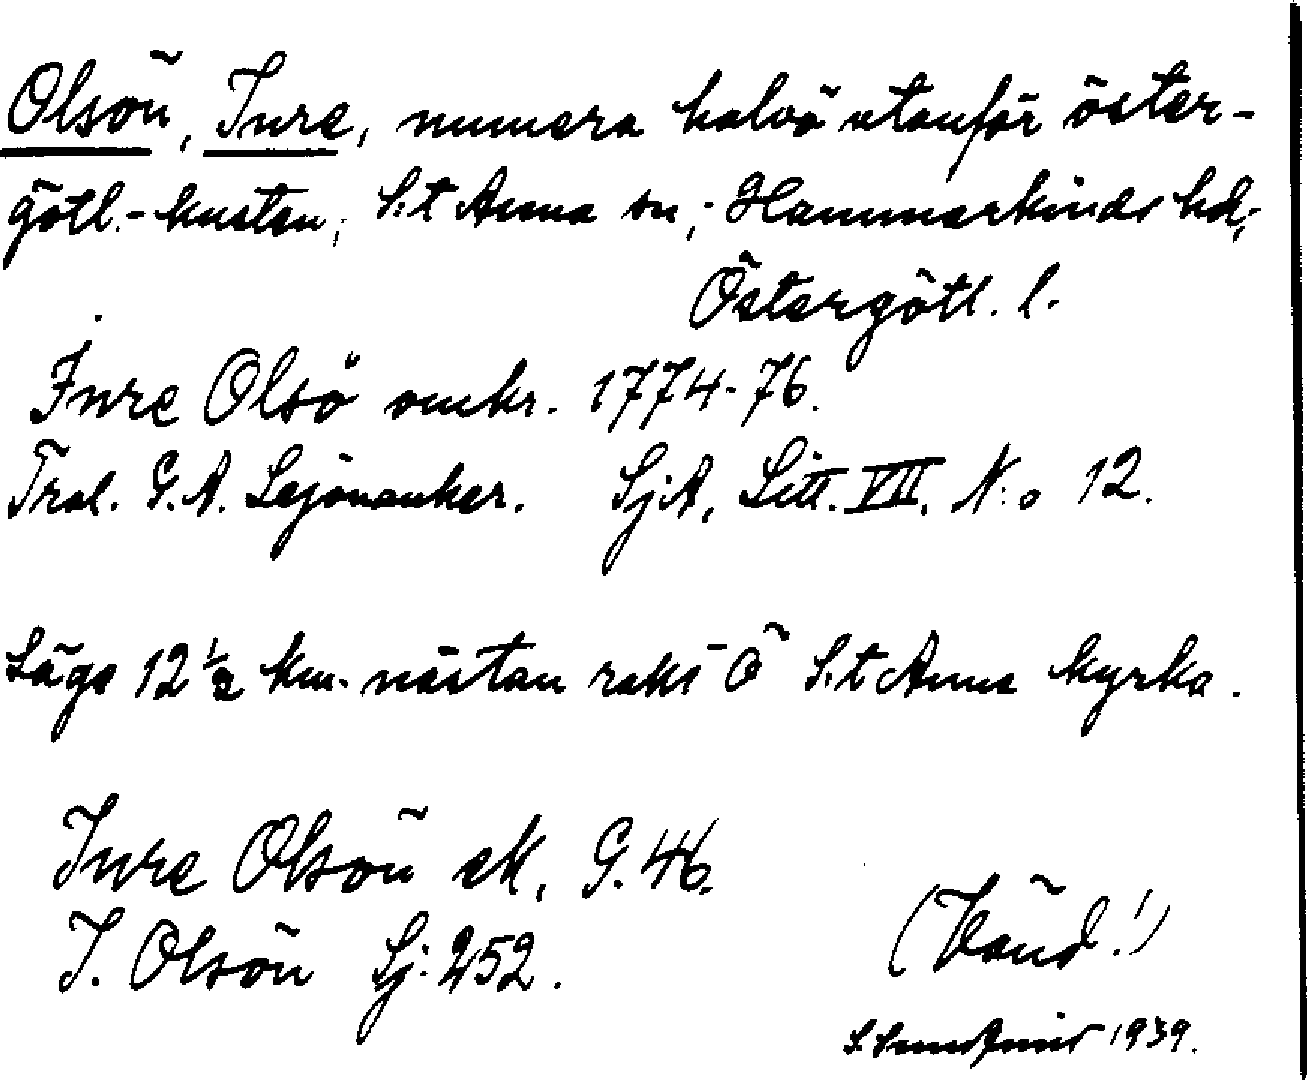 Olsön, Inre, numera halvö utanför öster-
götl.-kusten, S:t Anna sn, Hammarkinds hd,
Östergötl. l.
Inre Olsö omkr. 1774-76.
Tral. G.A. Lejonanker. SjA, Litt. VII. N:o 12.
Läge 12 1/2 km. nästan rakt Ö S:t Anna kyrka.
Inre Olsön ek, G. 46.
I. Olsön Sj: 252.
(Vänd!)
1939.